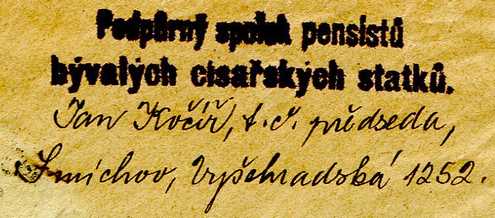 Podpůrný spolek pensistů
bývalých císařských statků.
Jan Kočíř, t. č. předseda,
Smíchov, Vyšehradská 1252.